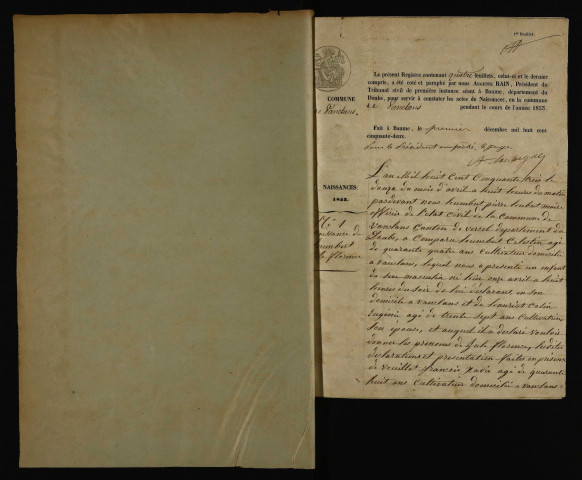 1er feuillet.
COMMUNE
de Vanclans.
NAISSANCES.
1853.
Le présent Registre contenant quatre feuillets, celui-ci et le dernier
compris, a été coté et paraphé par nous Auguste BAIN, Président du
Tribunal civil de première instance séant à Baume, département du
Doubs, pour servir à constater les actes de Naissances, en la commune
de Vanclans pendant le cours de l'année 1853.
Fait à Baume, le premier décembre mil huit cent
cinquante-deux.
Pour le Président empêché, le juge
N° 1
naissance de
humbert
florence
L'an Mil huit Cent Cinquante trois le
douze du mois d'avril a huit heures du matin
pardevant nous humbert pierre maire
officier de l'état civil de la Commune de
Vanclans Canton de vercel departement du
Doubs, a Comparu humbert Celestin agé
de quarante quatre ans Cultivateur domicilié
a vanclans, lequel nous a presenté un enfant
du sexe masculin né hier onze avril a huit
heures du soir de lui déclarant, en son
domicile a vanclans et de
Eugénie agé de trente sept ans Cultivatrice
son épouse, et auquel il a declaré vouloir
donner les prenoms de florence, lesdites
declaration et presentation faites en presence
de vouillot françois xavie agé de quarante
huit ans Cultivateur domicilié a vanclans